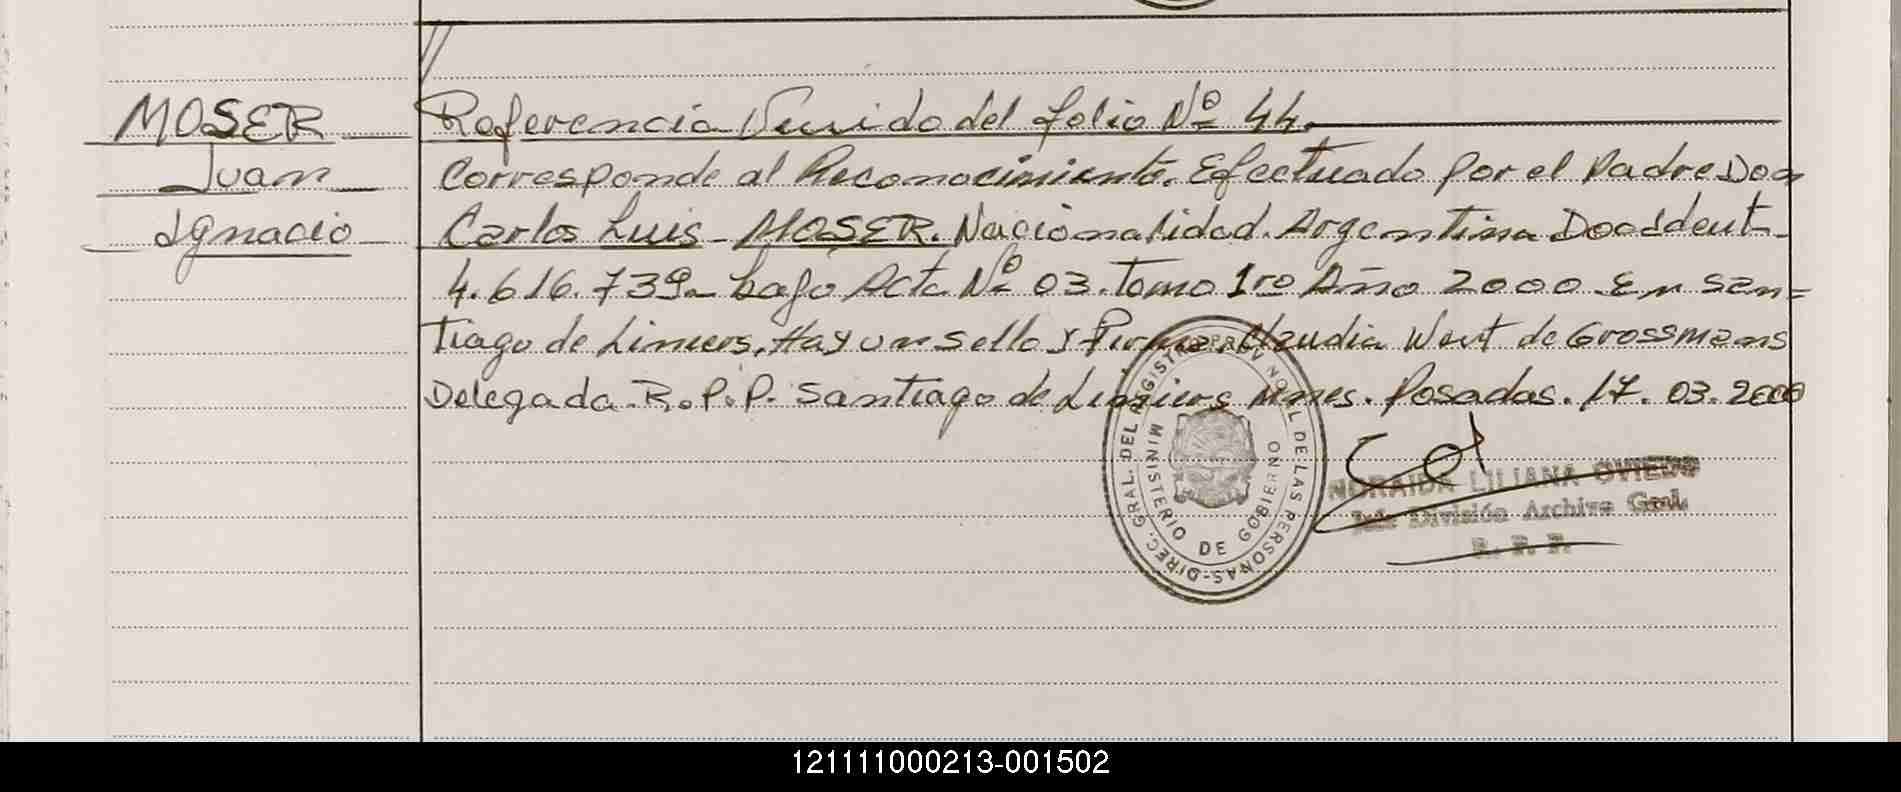 MOSER
Juan
Ignacio
Referencia Venido del folio Nº 44.
Corresponde al Reconocimiento. Efectuado por el Padre Don
Carlos Luis MOSER. Nacionalidad. Argentina Doc Ident.
4.616.739 bajo Acta Nº 03. Tomo 1ro Año 2000. En San=
tiago de Liniers. Hay un sello y Firma. Claudia West de Grossmans
Delegada. R.P.P. Santiago de Liniers Mnes. Posadas. 17.03.2000
DIREC. GRAL. DEL REGISTRO PROV
DE LAS PERSONAS
MINISTERIO DE GOBIERNO
NORAIDA LILIANA OVIEDO
Jefe División Archivo Gral.
R. P. P.
121111000213-001502